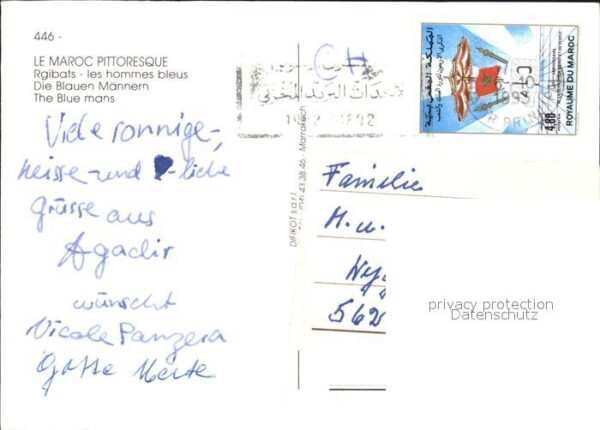 446 -
LE MAROC PITTORESQUE
Rgibats - les hommes bleus
Die Blauen Männern
The Blue mans
Viele sonnige-,
heisse und -liche
Grüsse aus
Agadir
wünscht
Nicole Panzera
DIFIKOT s.a.r.l.
43.38.46 - Marrakech
CH
1892
المملكة المغربية
ROYAUME DU MAROC
4,80
1993
Familie
M. u.
562
privacy protection
Datenschutz